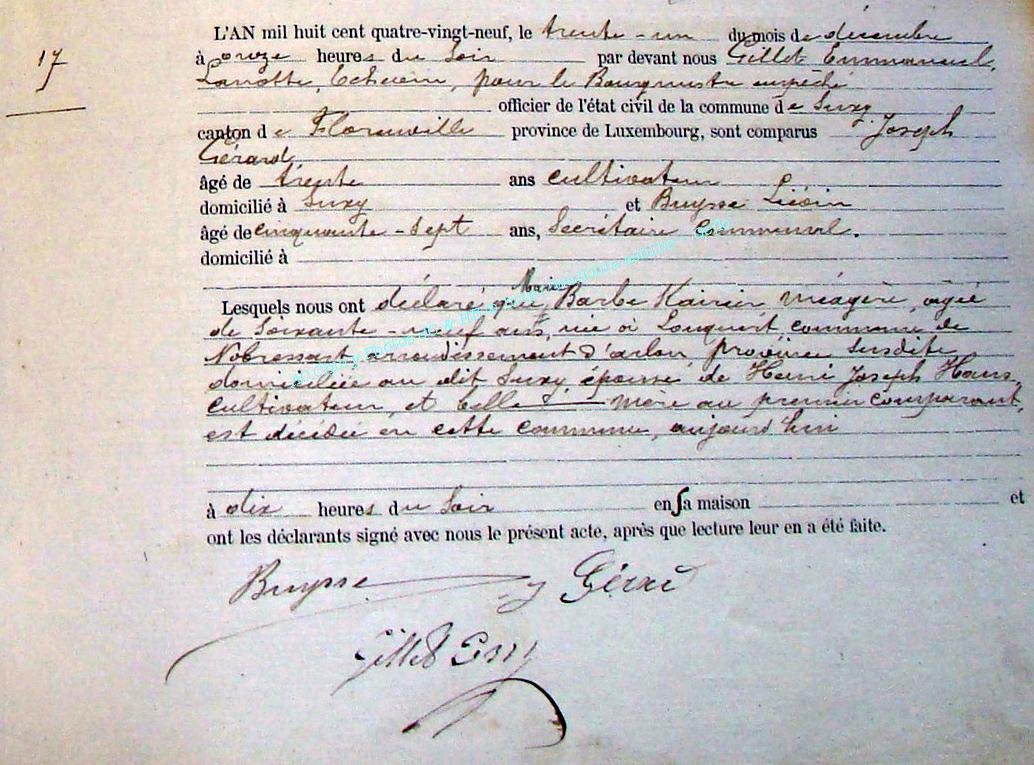 17
L'AN mil huit cent quatre-vingt-neuf, le trente-un du mois de décembre
à onze heures du Soir par devant nous Gillet Emmanuel,
Lanotte, Echevin, pour le Bourgmestre empêché
officier de l'état civil de la commune de Suxy
canton de Florenville province de Luxembourg, sont comparus Joseph
Gérard
âgé de trente ans cultivateur
domicilié à Suxy et Buysse Liévin
âgé de cinquante-sept ans, Secrétaire Communal.
domicilié à
Marie
Lesquels nous ont déclaré que Barbe Kairier méagère, agée
de Soixante-neuf ans, née à Louquert, commune de
Nobressart arrondissement d'arlon province susdite,
domiciliée au dit Suxy, épouse de Henri Joseph Hans,
cultivateur, et belle mère au premier comparant,
est décédée en cette commune, aujourd'hui
à dix heures du Soir en sa maison et
ont les déclarants signé avec nous le présent acte, après que lecture leur en a été faite.
Buysse J Gérard
Gillet Em